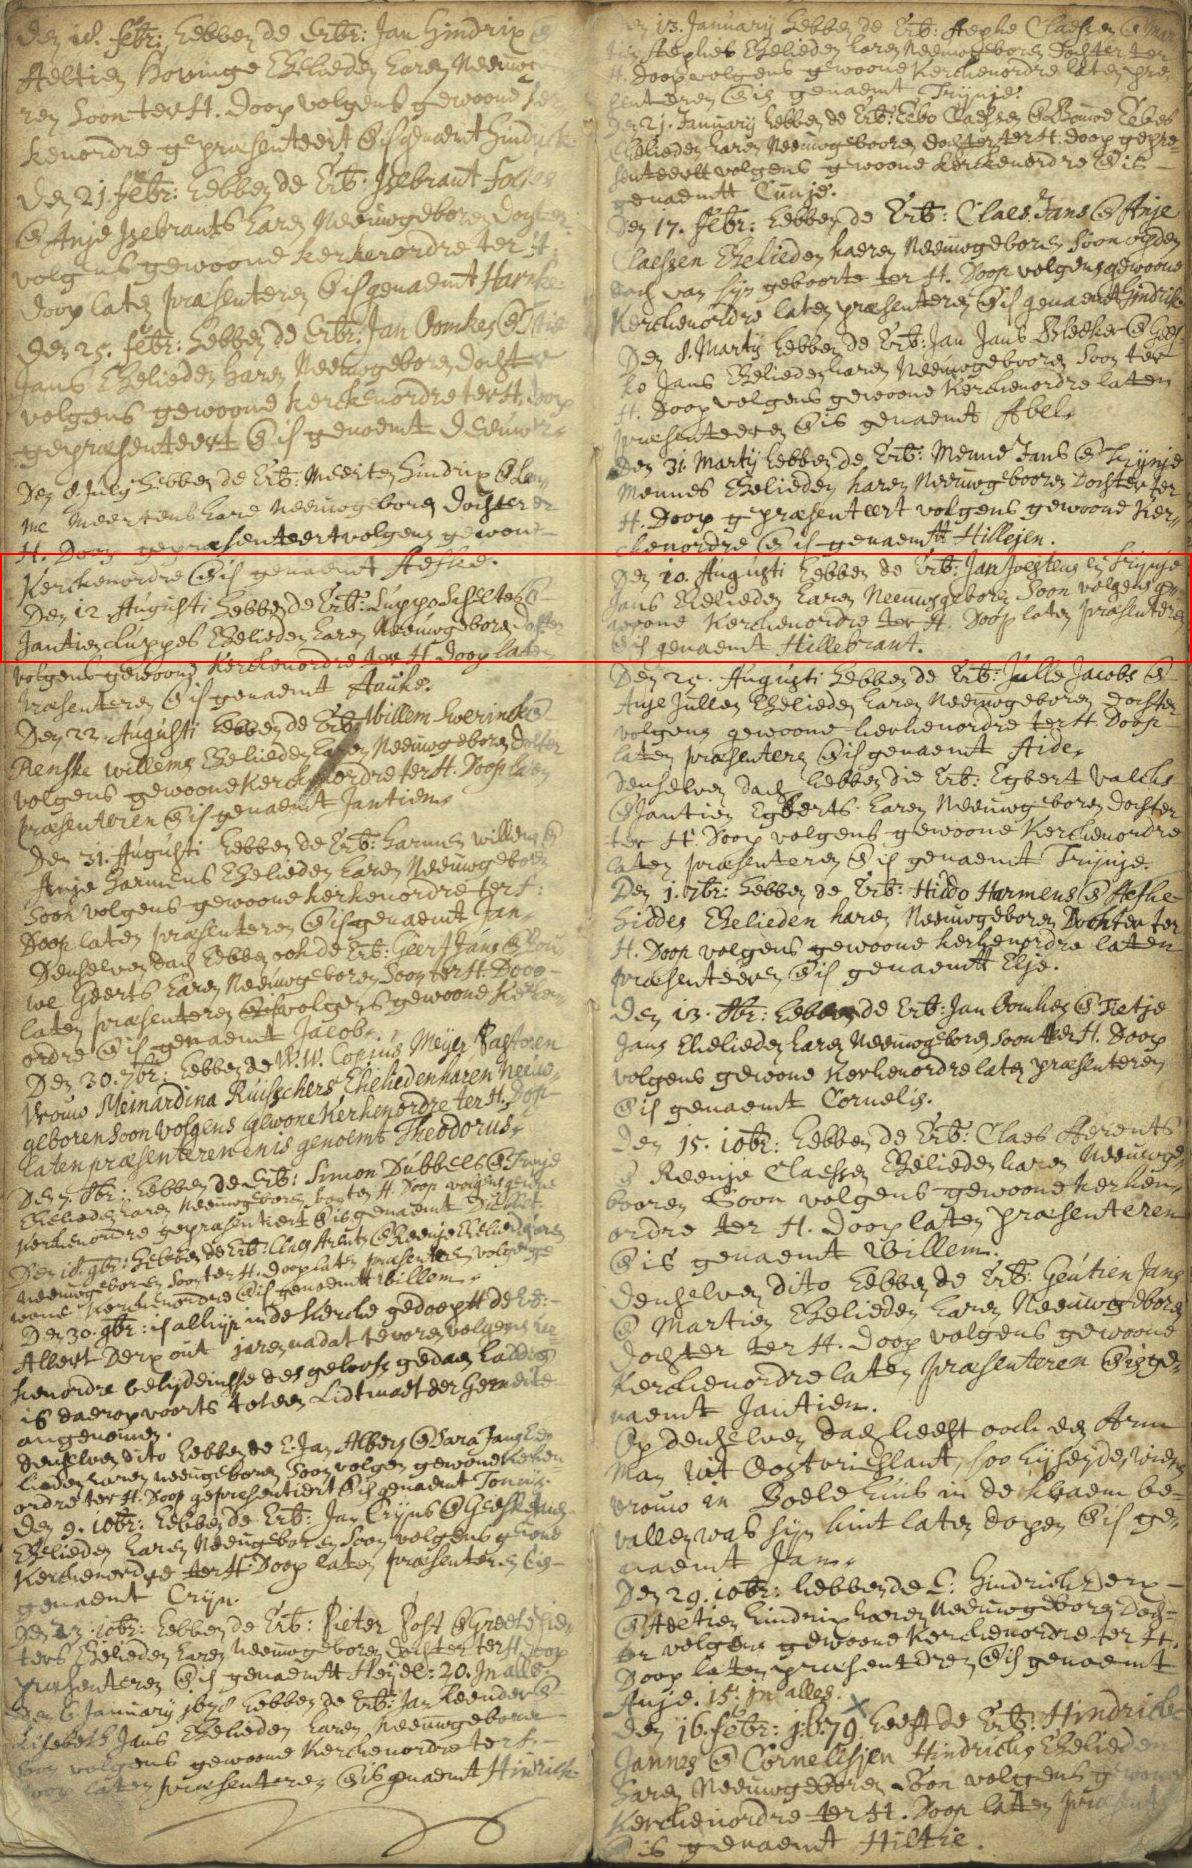 Den 18. febr: hebben de Erb: Jan Hindrix @
Aeltien Hovinge Ehelieden haren Neewgebo
ren Soon ter H. Doop volgens gewoone ker
kenordre gepræsenteert @ is genaemt Hindrick
Den 21. febr: hebben de Erb: Isebrant
@ Anje Isebrants haren Neewgeboren dogter
volgens gewoone kerkenordre ter H:
doop laten præsenteren @ is genaemt Harmke
Den 25. febr: hebben de Erb: Jan Oomkes @
Jans Ehelieden haren Neewgeboren dochter
volgens gewoone kerkenordre ter H. doop
gepræsenteert @ is genoemt
Den 8. July hebben de Erb: Meerten Hindrix @
me Meertens hare Neewgeboren dochter ter
H. Doop gepræsenteert volgens gewoone
Kerckenordre @ is genaemt Aefke.
Den 12 Augusti hebben de Erb: Luppo Scheltes @
Jantien Luppes Ehelieden haren Neewgeboren dochter
volgens gewoone Kerckenordre ter H. doop laten
Præsenteren @ is genaemt Aauke.
Den 22. Augusti hebben de Erb: Willem Swerincks @
Renske willems Ehelieden haren Neewgeboren dochter
volgens gewoone Kerckenordre ter H. Doop laten
præsenteren @ is genaemt Jantien.
Den 31. Augusti hebben de Erb: Harmen willems @
Anje Harmens Ehelieden haren Neewgeboren
Soon volgens gewoone kerkenordre ter H:
Doop laten præsenteren @ is genaemt Jan.
Denselven dach hebben ook de Erb: Geert Jans @
we Geerts haren Neewgeboren Soon ter H. Doop
laten præsenteren volgens gewoone Kerken
ordre @ is genaemt Jacob.
Den 30. 7br: hebben de W.W. Copius Meyer Pastoren
Vrouw Meinardina Ruisschers Ehelieden haren Neew-
geboren Soon volgens gewone Kerkenordre ter H. Doop
Laten præsenteren en is genoemt Theodorus.
Den 7. 8br: hebben de Erb: Simon Dubbels @ Trinje
Ehelieden haren Neewgeboren Soon ter H. Doop volgens gewone
Kerckenordre gepræsentiert @ is genaemt Dubbelt.
Den 18. 9br: hebben de Erb: Claes Arents @ Reenje Ehelieden haren
Neewgeboren Soon ter H. doop laten præsenteren volgens ge
woone Kerckenordre @ is genaemt Willem.
Den 30. 9br: is alhyr in de Kercke gedoopt de E:
Albert Derx out jaren nadat te voren volgens ker
kenordre belydenisse des geloofs gedaen hadde @
is daerop voorts tot een Lidtmaet der Gemeente
angenomen.
denselven dito hebben de E. Jan Albers @ Sara Jans Ehe
lieden haren neewgeboren Soon volgens gewoone Kerken
ordre ter H. Doop gepresentiert @ is genaemt Tonnis.
Den 9. 10br: hebben de Erb: Jan Cryns @ Geeske Jans
Ehelieden haren Neewgeboren Soon volgens gewone
Kerckenordre ter H. Doop laten præsenteren @ is
genaemt Cryn.
Den 23. 10br: hebben de Erb: Pieter Post @ Greete Pie-
ters Ehelieden haren Neewgeboren dochter ter H. Doop
præsenteren @ is genaemt Heijle: 20. In alles.
Den 6 January 1678 hebben de Erb: Jan Reenders @
Lisebeth Jans Ehelieden haren Neewgeboren
Soon volgens gewoone Kerckenordre ter H.
Doop laten præsenteren @ is genaemt Hindrick.
Den 13. January hebben de Erb: Aephe Claessen @
Aephes Ehelieden haren Neewgeboren dochter ter
H. Doop volgens gewoone Kerckenordre laten præ
senteren @ is genaemt Trynje.
Den 21. January hebben de Erb: Eebo Claessen @ Bouwe Eebes
Ehelieden haren Neewgebooren dochter ter H. doop gepræ-
senteert volgens gewoone kerckenordre @ is
genaemt Cunje.
Den 17. febr: hebben de Erb: Claes Jans @ Anje
Claessen Ehelieden haeren Neewgeboren Soon op den
dach van syn geboorte ter H. Doop volgens gewoone
Kerckenordre laten præsenteren @ is genaemt Hindrik
Den 8. Marty hebben de Erb: Jan Jans Bleeker @
ko Jans Ehelieden haren Neewgebooren Soon ter
H. Doop volgens gewoone Kerckenordre laten
præsenteeren @ is genaemt Abel.
Den 31. Marty hebben de Erb: Menne Jans @ Trynje
Mennes Ehelieden haren Neewgebooren Dochter ter
H. Doop gepræsenteert volgens gewoone Ker-
kenordre @ is genaemt Hillejen.
Den 10. Augusti hebben de Erb: Jan Joestens en Trijnje
Jans Ehelieden haren Neewgeboren Soon volgens ge-
woone Kerckenordre ter H. Doop laten præsenteren
@ is genaemt Hillebrant.
Den 25. Augusti hebben de Erb: Julle Jacobs @
Anje Jullen Ehelieden haren Neewgeboren dochter
volgens gewoone kerkenordre ter H. Doop
laten præsenteren @ is genaemt Aide.
Denselven dach hebben die Erb: Egbert Valcks
@ Jantien Egberts haren Neewgeboren dochter
ter H. Doop volgens gewoone Kerckenordre
laten præsenteren @ is genaemt Trijnje.
Den 1. 7br: hebben de Erb: Hiddo Harmens @ Aefke
Hiddes Ehelieden haren Neewgeboren Dochter ter
H. Doop volgens gewoone kerkenordre laten
præsenteeren @ is genaemt Elje.
Den 13. 8br: hebben de Erb: Jan Oomkes @ Tietje
Jans Ehelieden haren Neewgeboren soon ter H. Doop
volgens gewone kerkenordre laten præsenteren
@ is genaemt Cornelis.
Den 15. 10br: hebben de Erb: Claes Aerents
@ Reenje Claessen Ehelieden haren Neewge-
booren Soon volgens gewoone kerken
ordre ter H. doop laten præsenteren
@ is genaemt Willem.
denselven dito hebben de Erb: Geutien Jans
@ Martien Ehelieden haren Neewgeboren
dochter ter H. doop volgens gewoone
Kerckenordre laten præsenteren @ is ge-
naemt Jantien.
Op denselven dach heeft ook een Arm
Man uit Oostvrieslant, soo hijr
vrouw in Boele huis in de kraem be-
vallen was syn kint laten dopen @ is ge-
naemt Jan.
Den 29. 10br: hebben de E: Hindrick Derx
@ Aeltien Hindrix haren Neewgeboren Doch-
ter volgens gewoone Kerckenordre ter H.
Doop laten præsenteren @ is genaemt
Anje. 15. in alles.
Den 16. febr: 1679 heeft de Erb: Hindrick
Jannes @ Cornelisjen Hindricks Ehelieden
haren Neewgeboren Soon volgens gewone
Kerckenordre ter H. Doop laten præsent
@ is genaemt Hiltie.